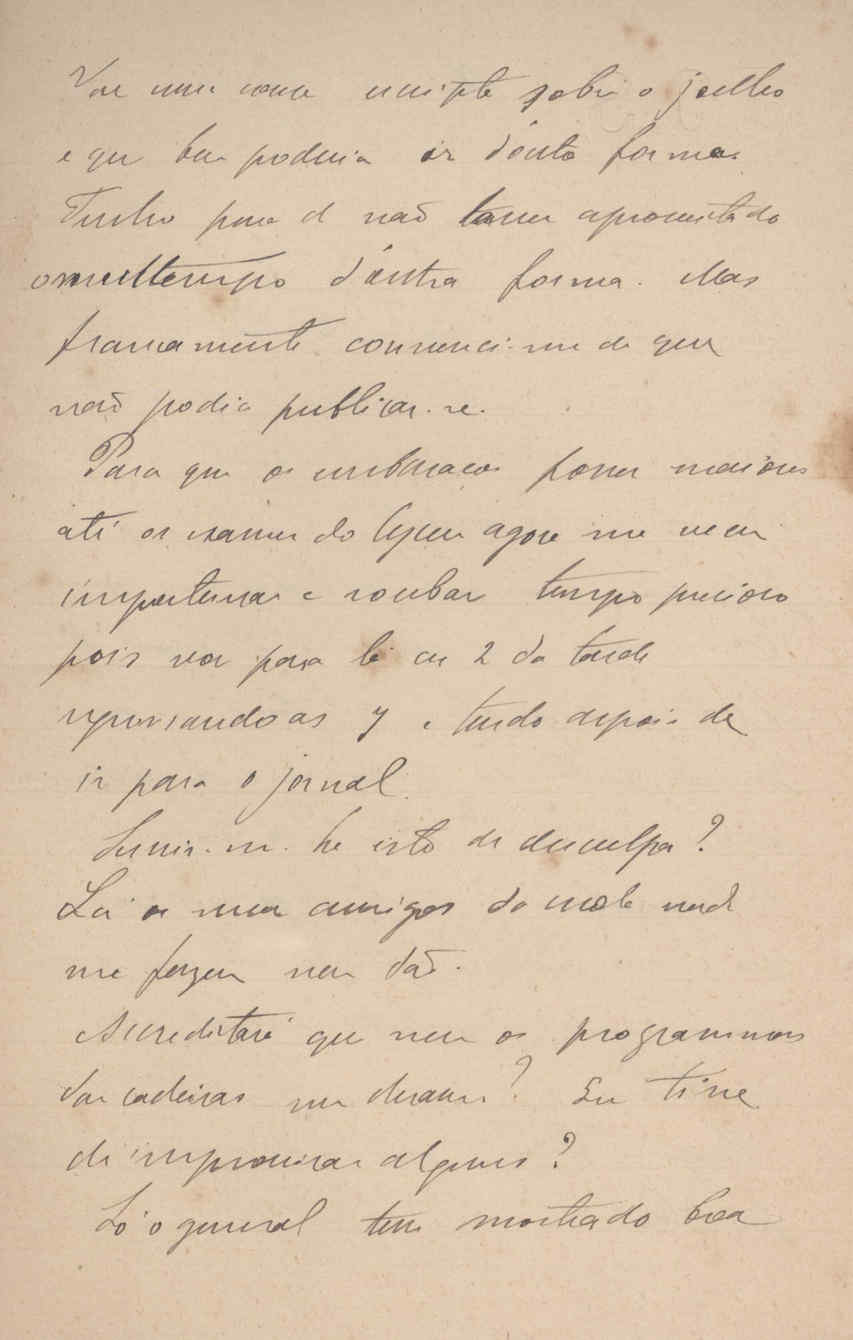 Vae uma cousa escripta sobre o joelho
e que bem poderia ir d'outa forma.
Tenho pena de não aproveitado
o tempo d'outra forma. Mas
francamente convenci-me de que
não podia publicar-se.
Para que os embaraços fossem maiores
até os exames do lyceu agora me veem
importunar e roubar tempo precioso
pois vou para lá ás 2 da tarde
regressando ás 7 e tendo depois de
ir para o jornal.
Servir-me-ha isto de desculpa?
Lá os meus amigos da escola nada
me fazem nem dão.
Acreditará que nem os programmas
das cadeiras me deram? Eu tive
de improvisar alguns?
Só o general tem mostrado boa